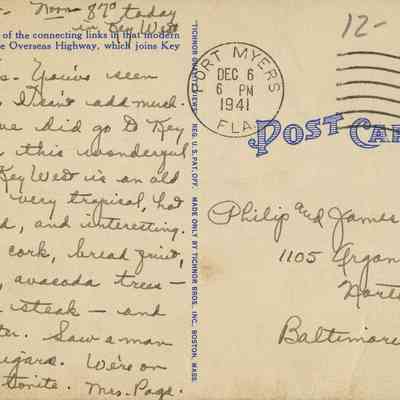 - Noon 87° today
in Key West
of the connecting links in that modern
e Overseas Highway, which joins Key
s. You've seen
I can't add much.
we did go to Key
this wonderful
Key West is an old
very tropical, hot
d, and interesting.
cork, bread fruit,
, avacoda trees –
steak – and
ter. Saw a man
igars. We're on
tonite. Mrs. Page.
TICHNOR QUALITY VIEWS REG. U.S. PAT. OFF. MADE ONLY BY TICHNOR BROS. INC. BOSTON, MASS.
12-
FORT MYERS
DEC 6
6 PM
1941
FLA.
POST CAR
Philip and James
1105 Argon
Nort
Baltimore